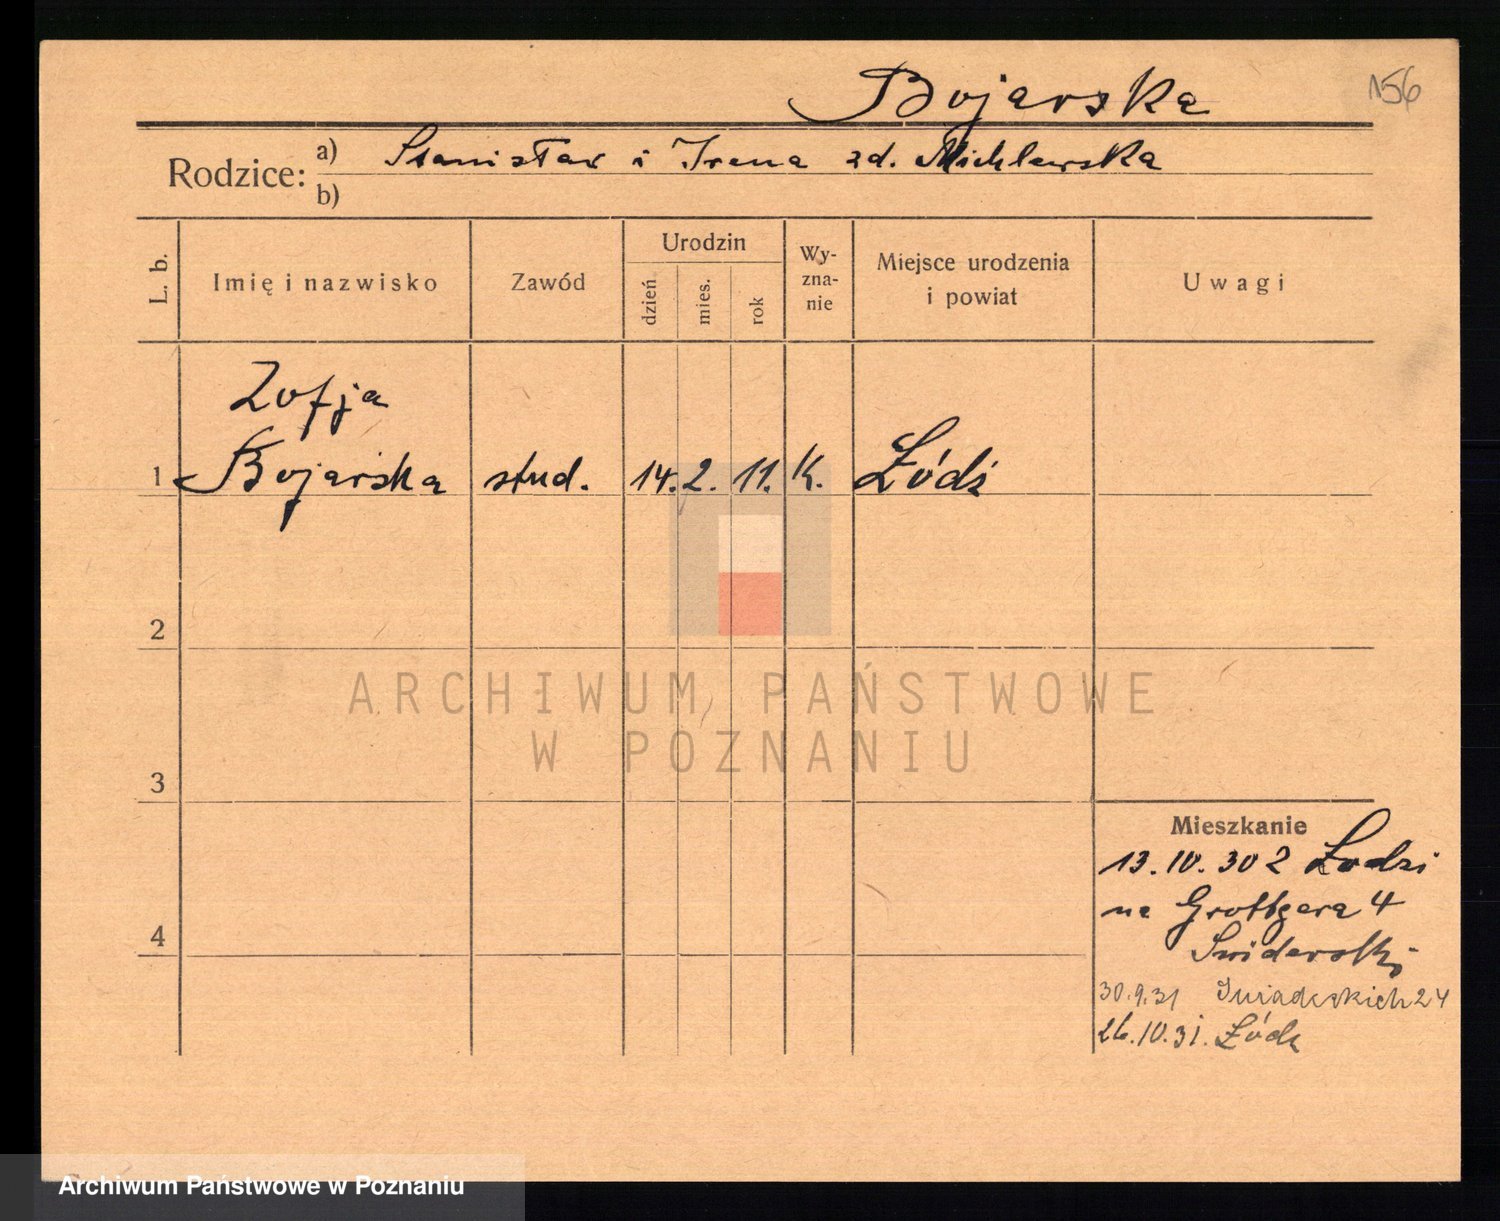 Bojarska
156
Rodzice: a) Stanisław i Irena zd. Michlewska
b)
L. b.
Imię i nazwisko
Zawód
Urodzin
dzień
mies.
rok
Wy-
zna-
nie
Miejsce urodzenia
i powiat
Uwagi
Zofja
1 Bojarska stud. 14. 2. 11. K. Łódź
2
3
4
Mieszkanie
13.10.30 z Łodzi
na Grottgera 4
Swiderski
30.9.31 Śniadeckich 24
26.10.31. Łódź
ARCHIWUM PAŃSTWOWE
W POZNANIU
Archiwum Państwowe w Poznaniu